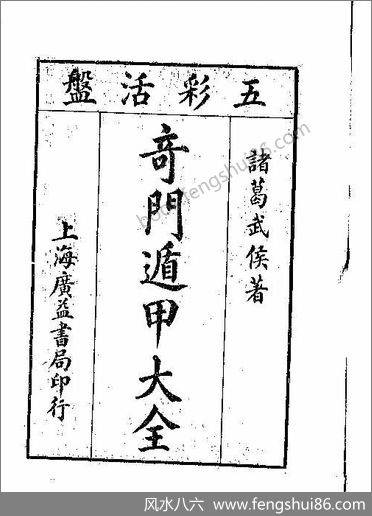 五彩活盤
諸葛武侯著
奇門遁甲大全
上海廣益書局印行
book.fengshui86.com
风水八六 - www.fengshui86.com